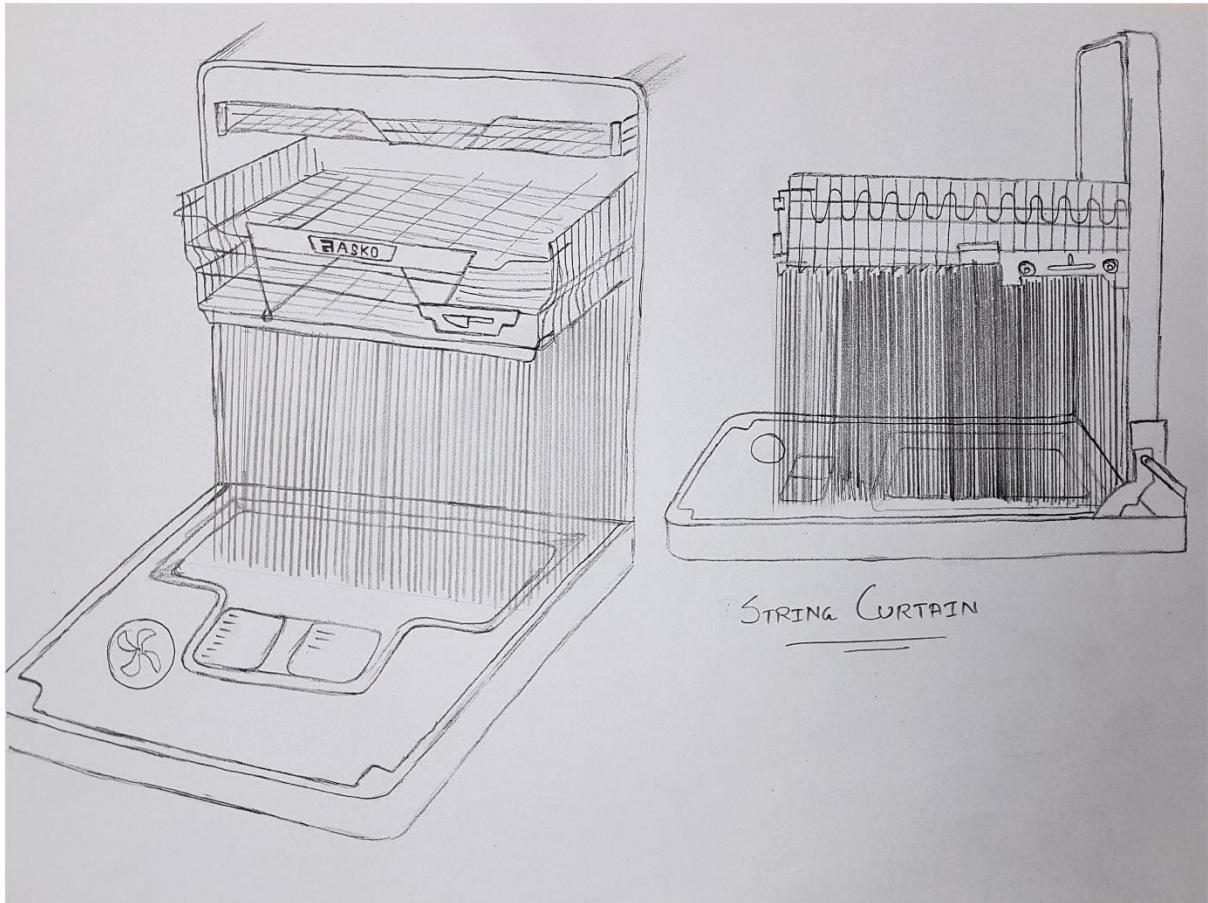 ASKO
STRING CURTAIN